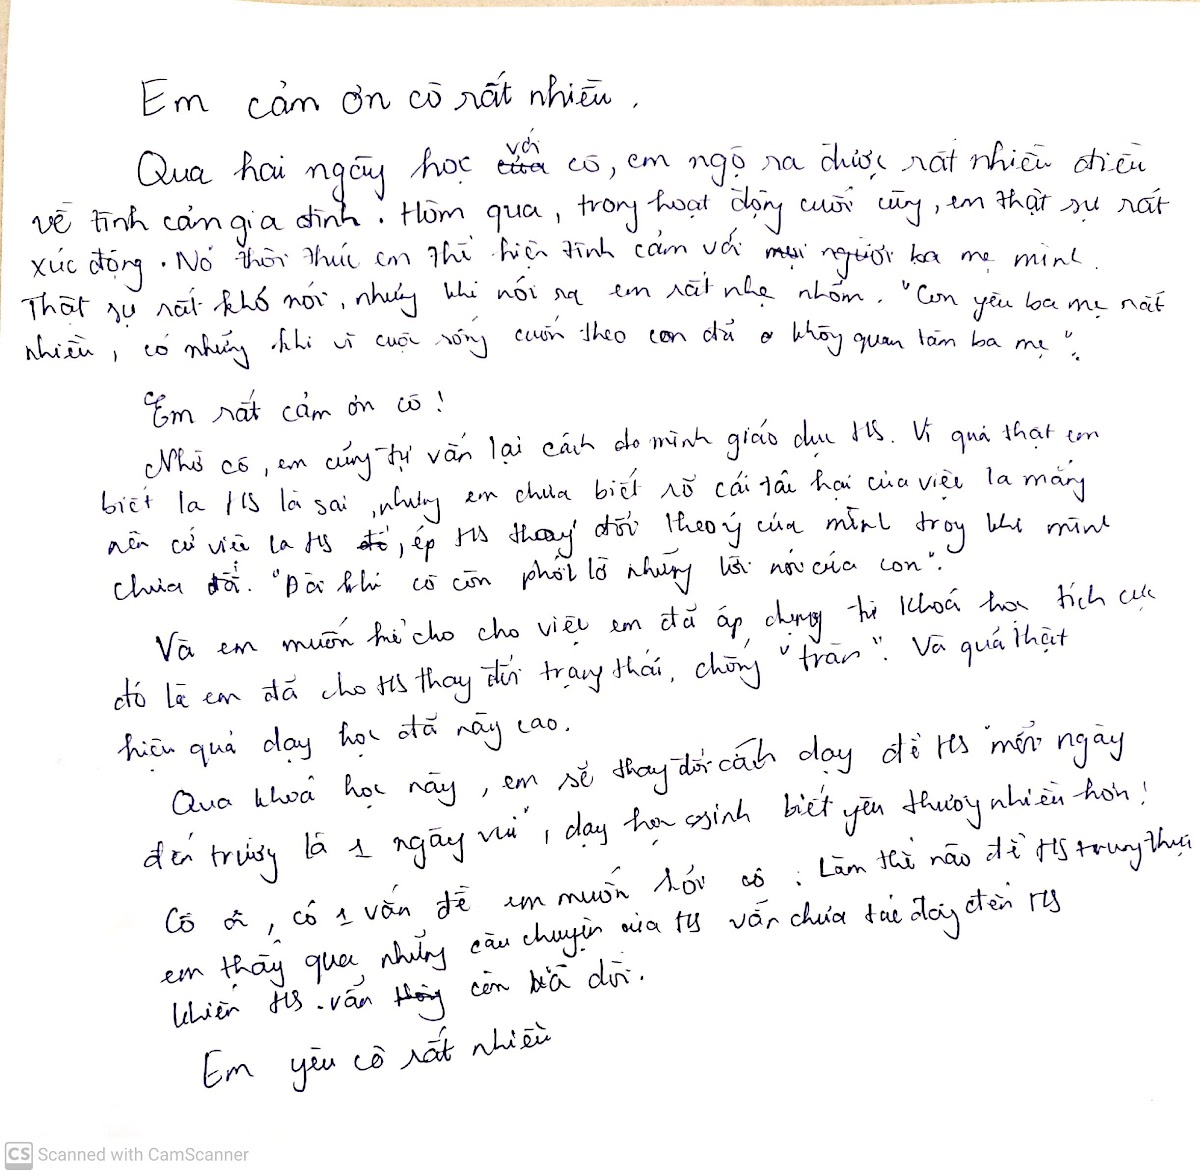 Em cảm ơn cô rất nhiều.
Qua hai ngày học với cô, em ngộ ra được rất nhiều điều
về tình cảm gia đình. Hôm qua, trong hoạt động cuối cùng, em thật sự rất
xúc động. Nó thôi thúc em thể hiện tình cảm với người ba mẹ mình.
Thật sự rất khó nói, nhưng khi nói ra em rất nhẹ nhõm. "Con yêu ba mẹ rất
nhiều, có những khi vì cuộc sống cuốn theo con đã không quan tâm ba mẹ".
Em rất cảm ơn cô!
Nhờ cô, em cũng tự vấn lại cách do mình giáo dục HS. Vì quả thật em
biết la HS là sai, nhưng em chưa biết rõ cái tác hại của việc la mắng
nên cứ việc la HS, ép HS thay đổi theo ý của mình trong khi mình
chưa đổi. "Đôi khi cô còn phớt lờ những lời nói của con".
Và em muốn kể cho cho việc em đã áp dụng từ khoá học tích cực
đó là em đã cho HS thay đổi trạng thái, chống "trân". Và quả thật
hiệu quả dạy học đã nâng cao.
Qua khoá học này, em sẽ thay đổi cách dạy để HS "mỗi ngày
đến trường là 1 ngày vui", dạy học sinh biết yêu thương nhiều hơn!
Cô ơi, có 1 vấn đề em muốn hỏi cô: Làm thế nào để HS trung thực
em thấy qua những câu chuyện của HS vẫn chưa tác động đến HS
khiến HS vẫn còn dối.
Em yêu cô rất nhiều
CS Scanned with CamScanner